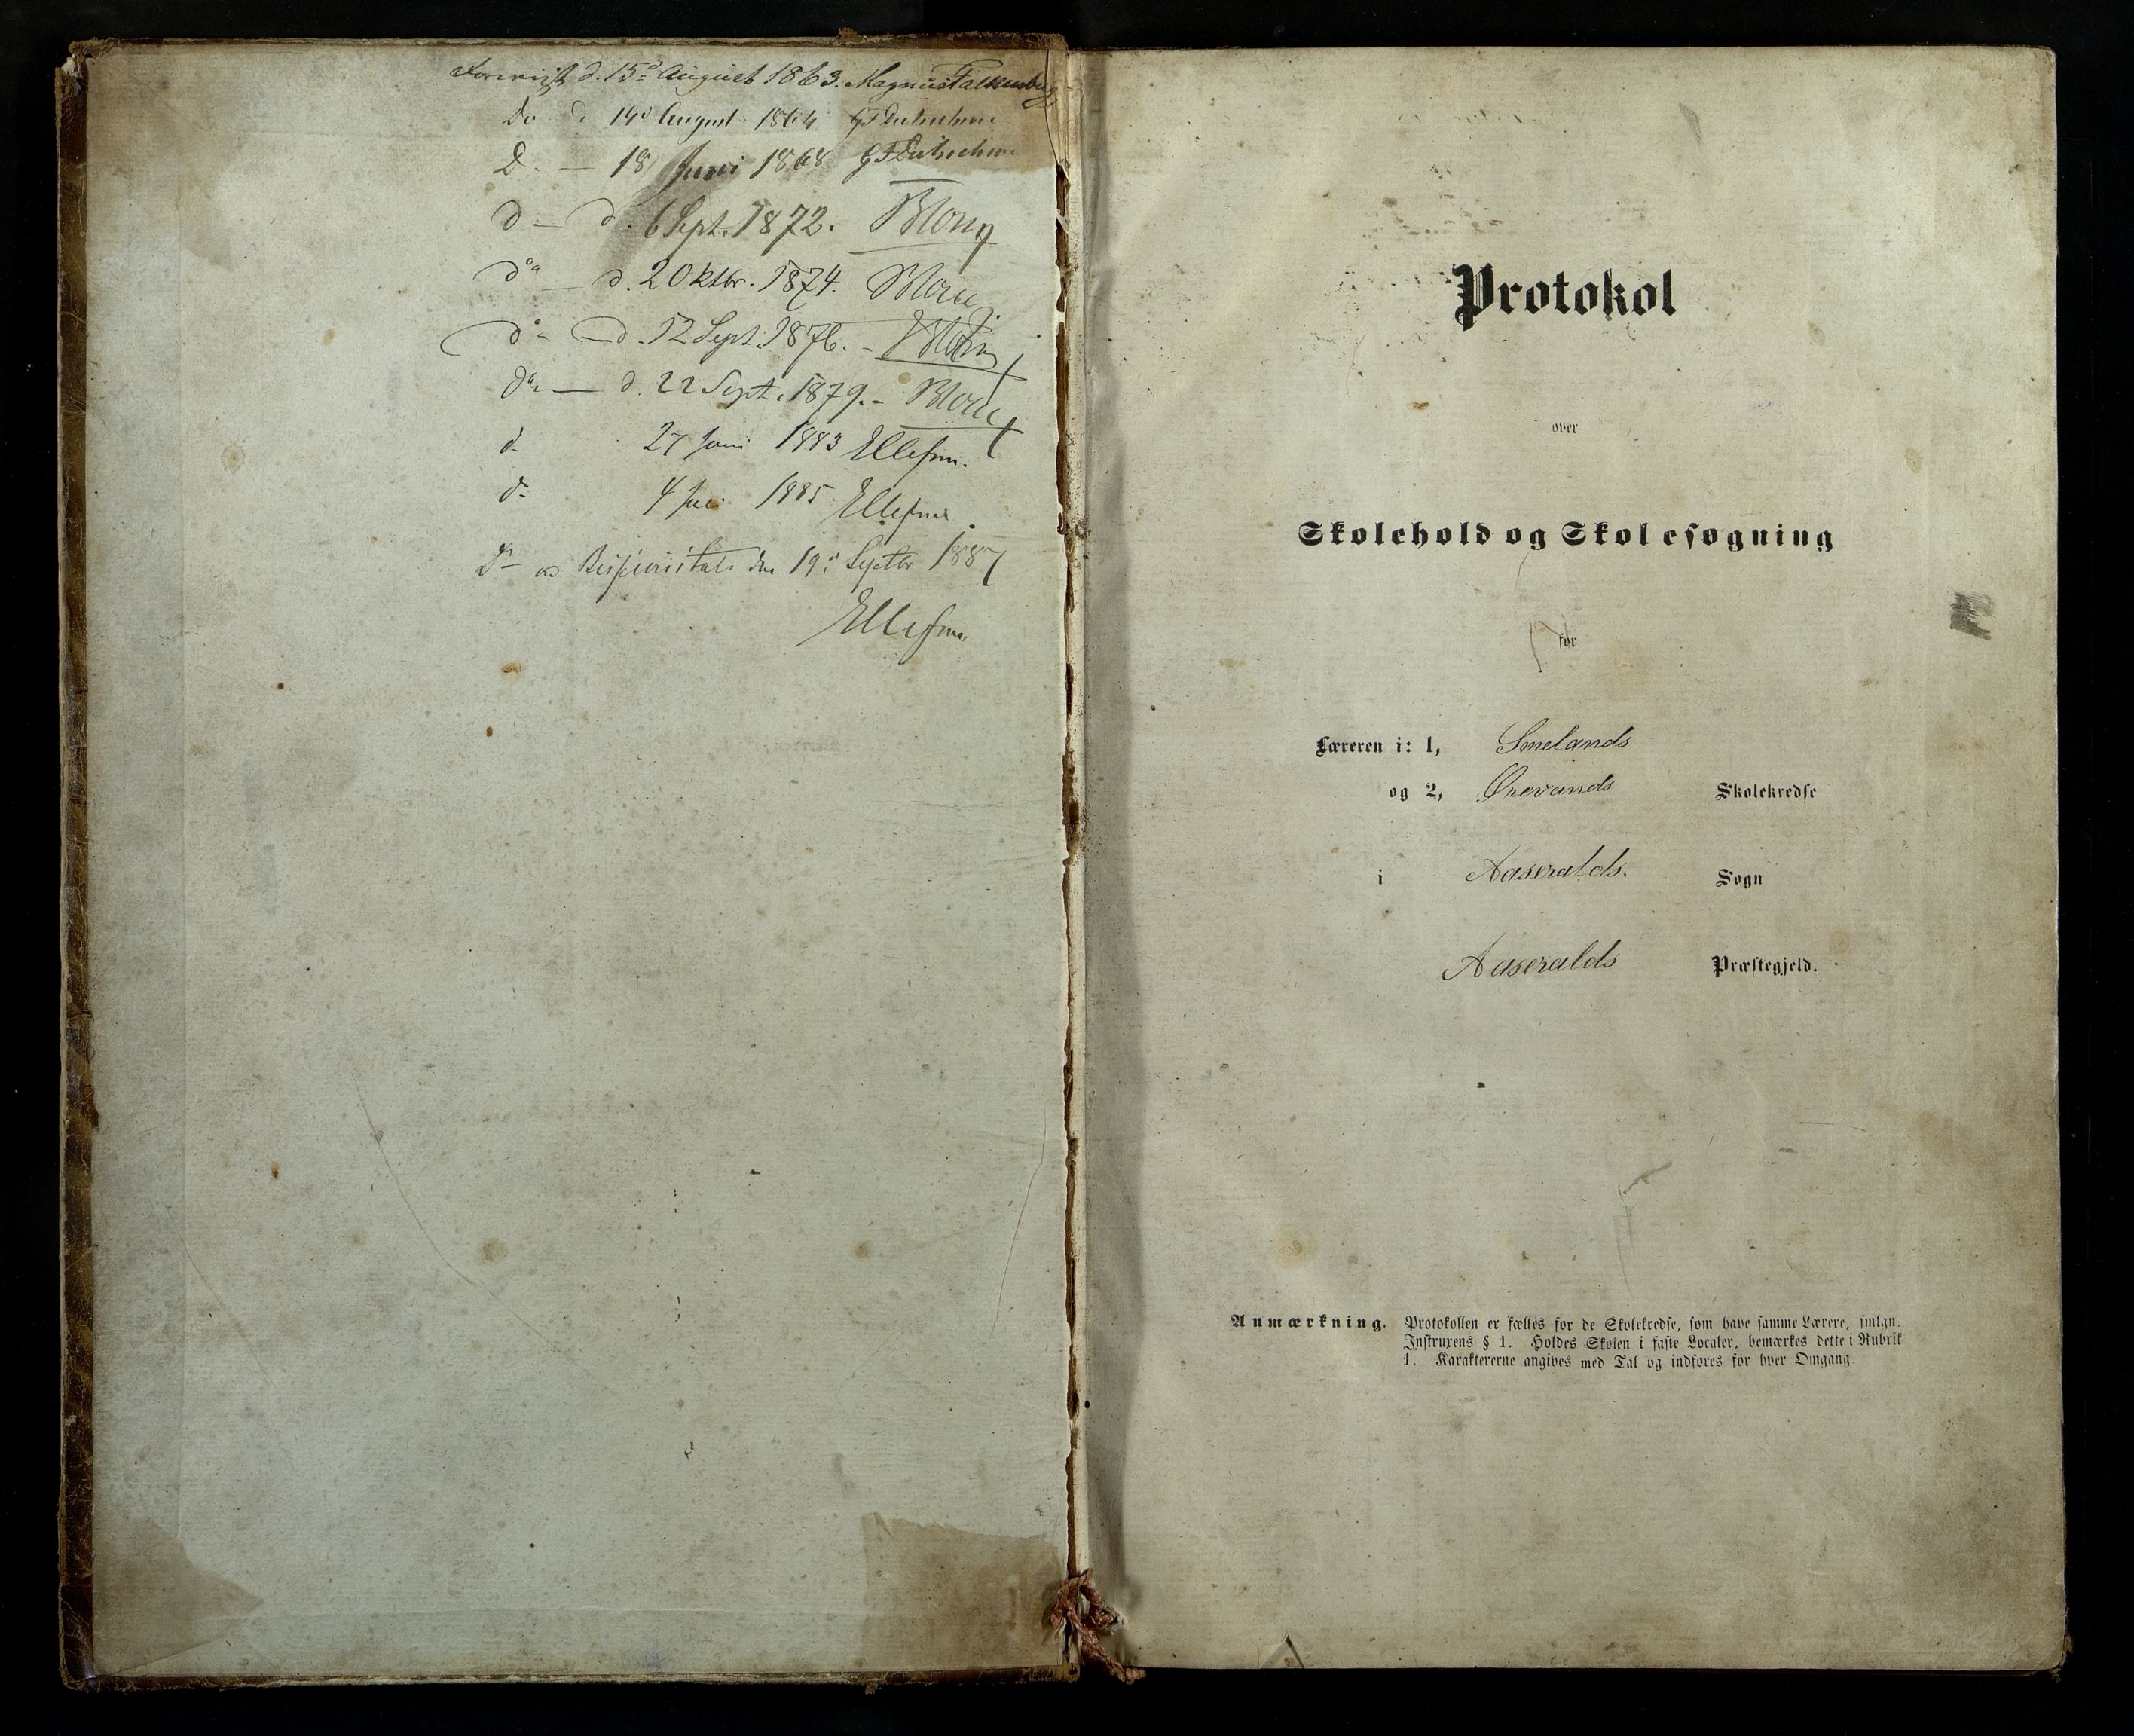 Forevist d. 15d August 1863. Magnus Falkenberg
Do d 14d August 1864
D. — 18 Juni 1868
d — d. 6 Sept. 1872.
do — d. 2 Oktbr. 1874.
do — d. 12 Sept. 1876. —
do — d. 22 Sept. 1879. —
d. 27 Juni 1883 Ellefsen.
do 4 Juli 1885 Ellefsen.
Do Bispevisitats den 19d Septbr 1887
Ellefsen.
Protokol
over
Skolehold og Skolesøgning
for
Læreren i: 1, Smelands
og 2, Ørevands Skolekredse
i Aaseralds. Sogn
Aaseralds Præstegjeld.
Anmærkning. Protokollen er fælles for de Skolekredse, som have samme Lærere, smlgn.
Instruxens § 1. Holdes Skolen i faste Localer, bemærkes dette i Rubrik
1. Karaktererne angives med Tal og indføres for hver Omgang.